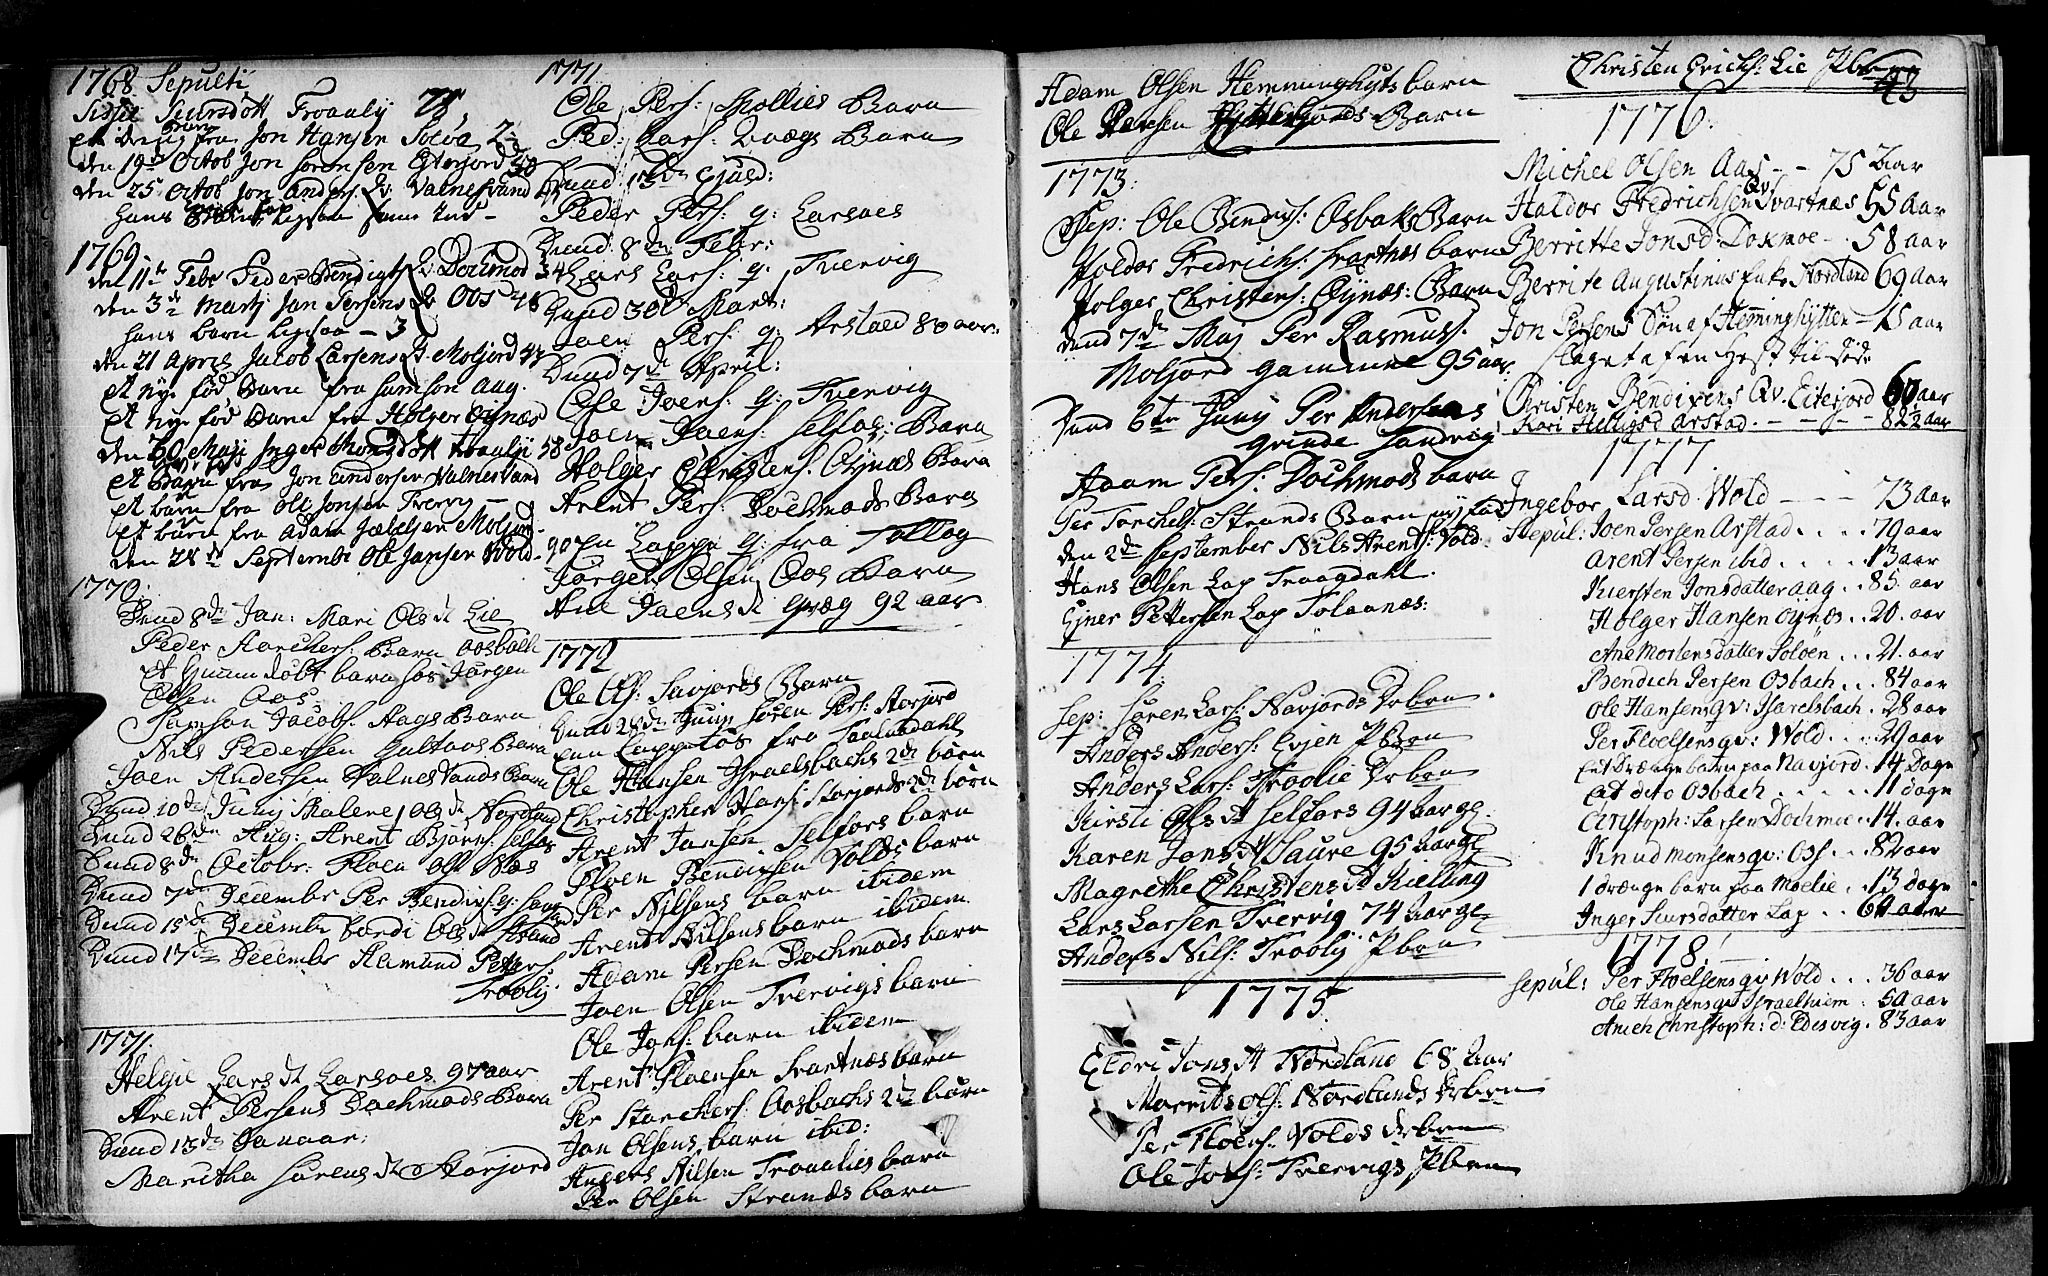 1768 Sepulti
Sissil Siursdott Troaaly 78
Et dreng fra Jon Hansen Soløa
den 19de Octob Jon Sørensen Eiterjord
den 25 Octob Jon Anders: Qv: Valnesvand
hans
1769.
den 11te Febr Peder Bendigts Qv: Dochmod 34
den 3de Martj Jan Jersens Qv Oos 48
hans barn Ligsaa - 3
den 21 April Jacob Larsens Qv Moljord 47
et nye fød Barn fra Samson Aag.
et nye fød Barn fra Holger Øynæs
den 30 Maji Inger Monsdtt Troaalji 58
et Barn fra Jon Andersen Valnesvand
et barn fra Oli Jonsen Tvervig -
et barn fra Adam Moljord
den 28de Septembr Ole Jansen Wold - 90
1770.
Dend 8de Jan: Mari Ols dt Lie
Peder Starchers: Barn Oosbach
et Hiemdøbt barn hos Jørgen
Olsen Oos.
Samson Jacobs: Aags Barn
Nils Pedersen Barn
Joen Andersen Valnesvands Barn
Dend 10de Junj Malene dt Nordland
Dend 26de Aug: Arent Bjørns: Selfors
Dend 8de Octobr: Floen Ols Næs
Dend 7de Decembr Per Bendixs: q:
Dend 15de Decembr Sordi Ols dt Strand
Dend 17de Decembr Aamund Petters:
Troolij.
1771.
Helgie Lars dt Larsoes 97 aar
Arent Persens Dochmods Barn
Dend 13de Januar:
Maritha Sørens dt Storjord
1771
Ole Pers: Mollies Barn
Ped: Lars: Qvægs Barn
Dend 13de Ejusd:
Peder Pers: q: Larsoes
Dend 8de Febr:
Lars Lars: q: Tvervig
Dend 30de Mart:
Joen Pers: q: Arstad 80 aar:
Dend 7de April:
Ole Joens: q: Tvervig
Joen Joens: Selfors: Barn
Holger Christens: Øynæs Barn
Arent Pers: Dochmods Barn
En Lappe q: fra Tollog
Jørgen Olsen Oos Barn
Ane Joens dt Qvæg 92 aar
1772
Ole Ols: Navjords Barn
Dend 28de Junij Søren Pers: Storjord
Een Lappetøs fra
Ole Hansen Israelsbachs 2de børn
Christopher Hans: Storjords 2de børn
Arent Jansen Selfors barn
Floen Bendixen Volds barn
Per Nilsens barn ibidem
Arent Nilsens barn ibidem
Adam Persen Dochmods barn
Joen Olsen Tvervigs barn
Ole Jons: barn ibidem
Arent Floensen Svartnæs barn
Per Starchers: Oosbachs 2de børn
Jon Olsens barn ibid:
Anders Nilsen Troaalies barn
Per Olsen Strands barn
Adam Olsen Hemminghyts barn
Ole Hansen Barn
1773.
Sep: Ole Bendixs: Osbaks Barn
Holdor Fredrichs: Svartnes barn
Holger Christens: Øynæs: Barn
Dend 7de Maj Per Rasmuss:
Moljord gammel 95 aar
Dend 6te Junj Per Andersens
qvinde Sandvig
Adam Pers: Dochmods barn
Per Torchels: Strands Barn ny fød
den 2de September Nils Arents: Vold
Hans Olsen Lap Troogdahl.
Ejner Pettersen Lap Tolaanæs:
1774.
Sep: Søren Lars: Navjords Drbrn.
Anders Anders: Evjen Pbrn
Anders Lars: Troolie Drbrn
Kirsti Ols dt Selfors 94 Aar gl.
Karen Jons dt Saure 95 aar gl.
Magrethe Christens dt Kielling
Lars Larsen Tvervig 74 Aar gl
Anders Nils: Troolij Pbrn
1775.
Eldri Jons dt Nordland 68 Aar
Morrits Ols: Nordlunds Drbrn
Per Floens: Volds Drbrn
Ole Jons: Tvervigs Pbrn
Christen Erichs: Lie Pbrn
43
1776.
Michel Olsen Aas - - 75 Aar
Haldor Fredrichsen Qv: Svartnæs 65 Aar
Berritte Jonsd: Dokmoe - . 58 aar
Berrite Augustinus Enke Nordland 69 aar
Jon Persens Søn af Hemminghytter - 15 aar
slaget af en hest til døde
Christen Bendixens Qv. Eiterjord 60 aar
Kari Helligsd Arstad. - - - - 82½ aar
1777
Ingebor Larsd. Wold - - - 73 aar
Sepul: Joen Persen Arstad . . . . 79 aar
Arent Persen ibid . . . . . 13 aar
Kiersten Jonsdatter Aag . . 85. aar
Holger Hansen Øynæs . . 20. aar
Ane Mortensdatter Soløen . . . 21. aar
Bendich Persen Osbach . . . 84 aar
Ole Hansens qv: Isarelsbach . 28 aar
Per Floelsens qv: Wold . . . . 29 aar
Eet Drænge barn paa Navjord . 14 Dage
Eet dito Osbach . . . . . . 11 dage
Christoph: Larsen Dochmoe . . 14. aar
Knud Monsens qv: Oss . . . 82 aar
1 drænge barn paa Moelie . . 13 dage
Inger Siursdatter Lap . . 64 aar
1778
Sepul: Per Floelsens qv Wold . . . 36 aar
Ole Hansens qv Israelhiem . 50 aar
Anen Christoph: d: Edesvig . 83 aar